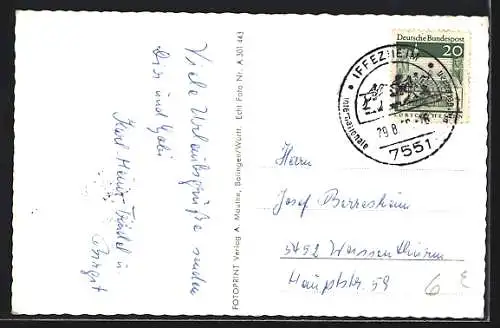 Viele Urlaubsgrüße senden
Dir und Gabi
Karl-Heinz,
u.
Birgit
FOTOPRINT Verlag A. Mauthe, Balingen/Württ. Echt Foto Nr. A 301 443
Deutsche Bundespost
20
IFFEZHEIM
Internationale
29.8.
7551
Herrn
Josef
5452 Weissenthurm
Hauptstr. 59
6